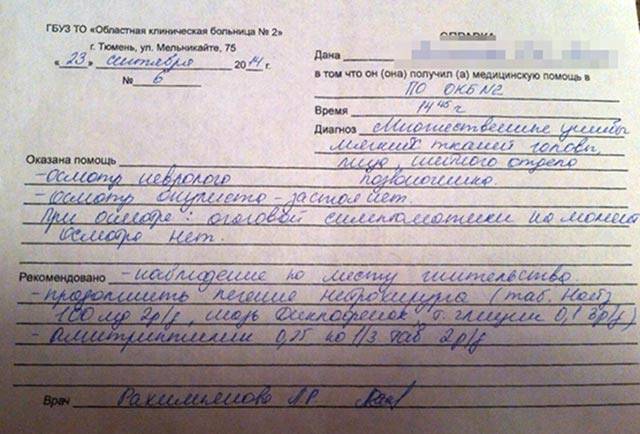 ГБУЗ ТО «Областная клиническая больница № 2»
г. Тюмень, ул. Мельникайте, 75
«23» сентября 2014 г.
№ 6
СПРАВКА
Дана
в том что он (она) получил (а) медицинскую помощь в
ПО ОКБ №2
Время 14 45 ч
Диагноз Множественные ушибы
мягких тканей головы,
лица, шейного отдела
позвоночника.
Оказана помощь
- осмотр невролога
- осмотр окулиста - застоя нет.
При осмотре: очаговой симптоматики на момент
осмотра нет.
Рекомендовано - наблюдение по месту жительства.
- продолжить лечение нейрохирурга (таб. Найз
100 мг 2р/д, мазь т. глицин 0,1 3р/д)
- Амитриптилин 0,25 по 1/3 таб 2р/д
Врач Рахимьянова